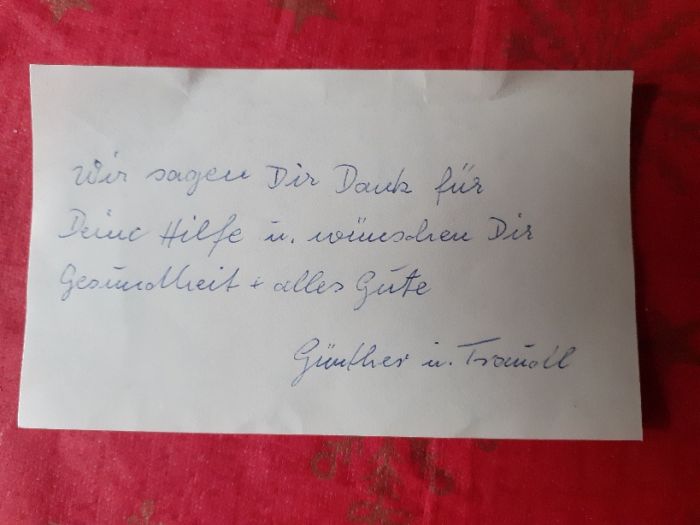 Wir sagen Dir Dank für
Deine Hilfe u. wünschen Dir
Gesundheit + alles Gute
Günther u. Traudl